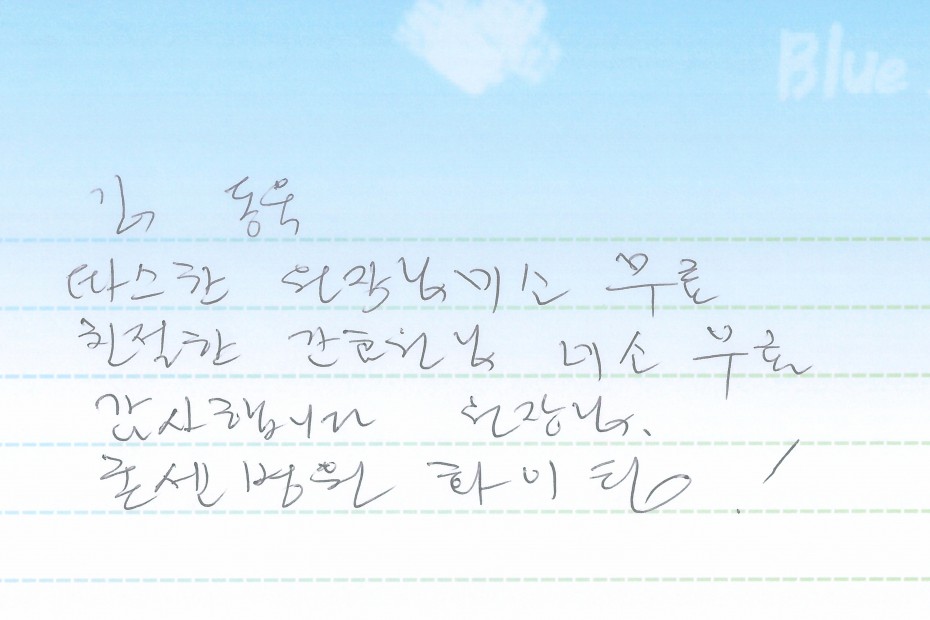 Blue
김 동욱
따스한 원장님 미소 무료
친절한 간호원님 미소 무료
감사합니다 원장님.
굿센병원 화이팅!